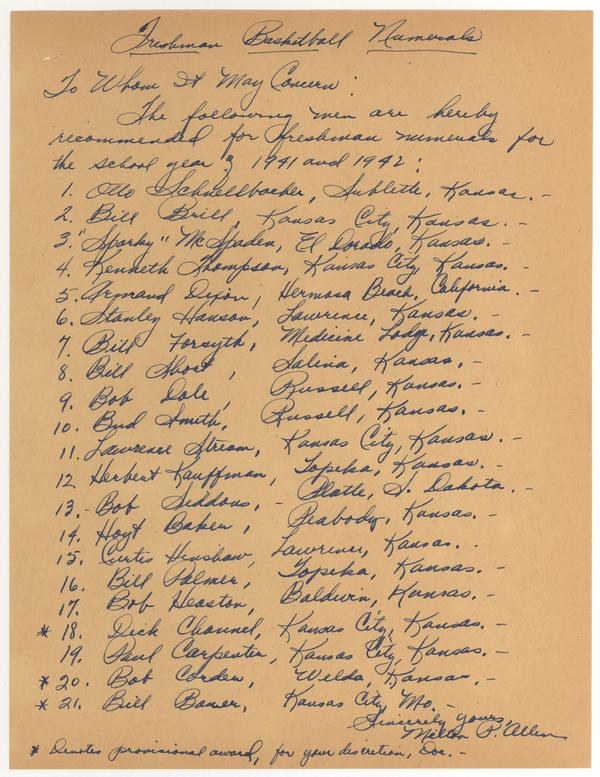 Freshman Basketball Numerals
To Whom It May Concern:
The following men are hereby
recommended for freshman numerals for
the school year of 1941 and 1942:
1. Otto Schnellbacher, Sublette, Kansas. -
2. Bill Brill, Kansas City, Kansas. -
3. "Sparky" McSpaden, El Dorado, Kansas. -
4. Kenneth Thompson, Kansas City, Kansas. -
5. Armand Dixon, Hermosa Beach, California. -
6. Stanley Hanson, Lawrence, Kansas. -
7. Bill Forsyth, Medicine Lodge, Kansas. -
8. Bill Short, Salina, Kansas. -
9. Bob Dole, Russell, Kansas. -
10. Bud Smith, Russell, Kansas. -
11. Lawrence Stream, Kansas City, Kansas. -
12 Herbert Kauffman, Topeka, Kansas. -
13. - Bob Siddons, - Platte, S. Dakota. -
14. Hoyt Baker, Peabody, Kansas. -
15. Curtis Henshaw, Lawrence, Kansas. -
16. Bill Palmer, Topeka, Kansas. -
17. Bob Heaston, Baldwin, Kansas. -
* 18. Dick Channel, Kansas City, Kansas. -
19. Paul Carpenter, Kansas City, Kansas. -
* 20. Bob Corder, Welda, Kansas. -
* 21. Bill Bower, Kansas City, Mo. -
Sincerely yours,
Milton P. Allen
* Denotes provisional award, for your discretion, Doc. -